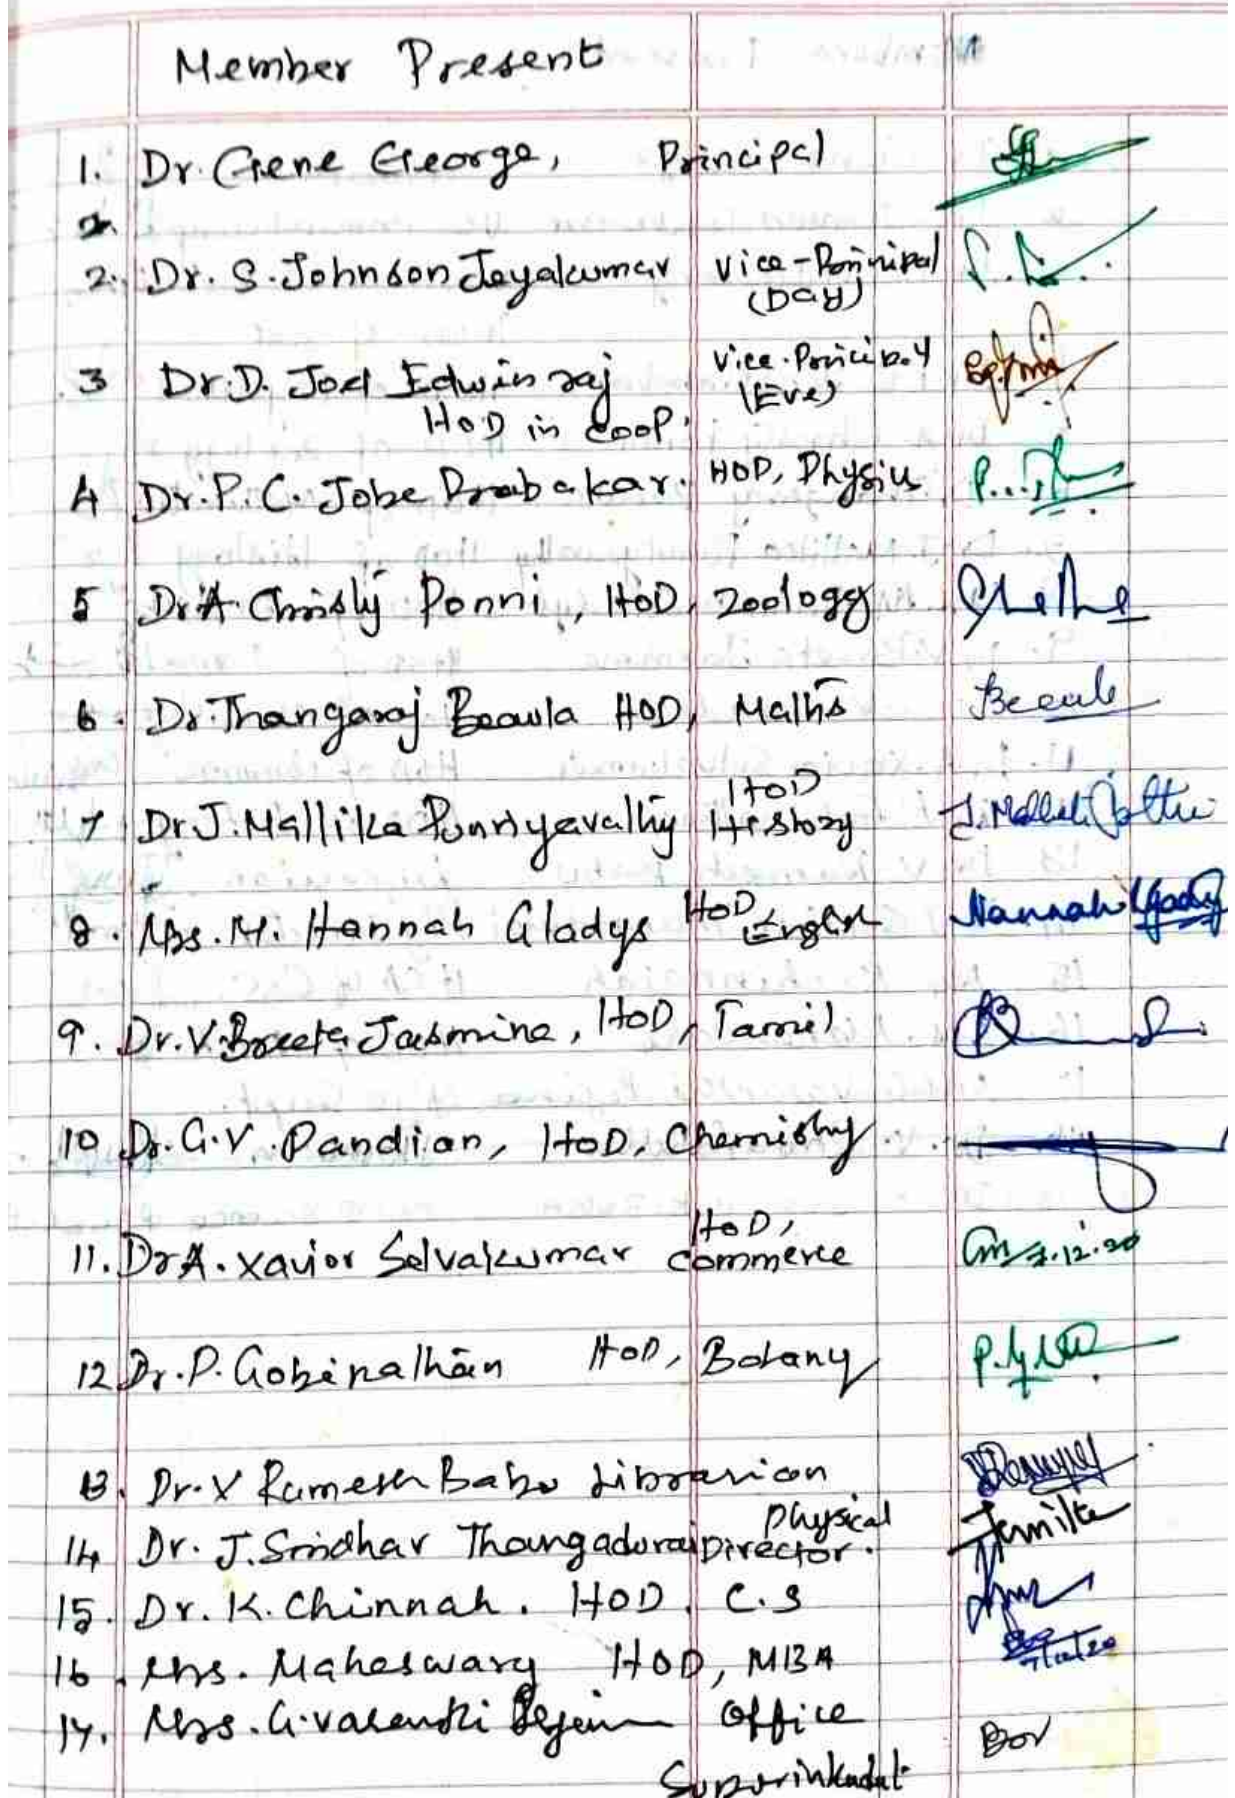 Member Present
1. Dr. Gene George, Principal
2
2. Dr. S. Johnson Jeyakumar Vice-Principal
(Day)
3 Dr. D. Joel Edwin raj Vice-Principal
(Eve)
HOD in coop.
4 Dr. P. C. Jobe Prabakar. HOD, Physics P.
5 Dr A. Christy Ponni, HOD, Zoology
6. Dr. Thangaraj Beaula HOD, Maths Beaula
7 Dr J. Mallika Punniyavathy HOD
History
8. Mrs. M. Hannah Gladys HOD English Hannah Gladys
9. Dr. V. Breeta Jasmine, HOD, Tamil
10 Dr. G. V. Pandian, HOD, Chemistry.
11. Dr A. Xavior Selvakumar HOD,
commerce 7.12.20
12 Dr. P. Gobinathan HOD, Botany
13. Dr. V Ramesh Babu Librarian
14 Dr. J. Sridhar Thangadurai Physical
Director.
15. Dr. K. Chinnah. HOD. C.S
16. Mrs. Maheswary HOD, MBA 7/12/20
17. Mrs. G. Office
Superintendent